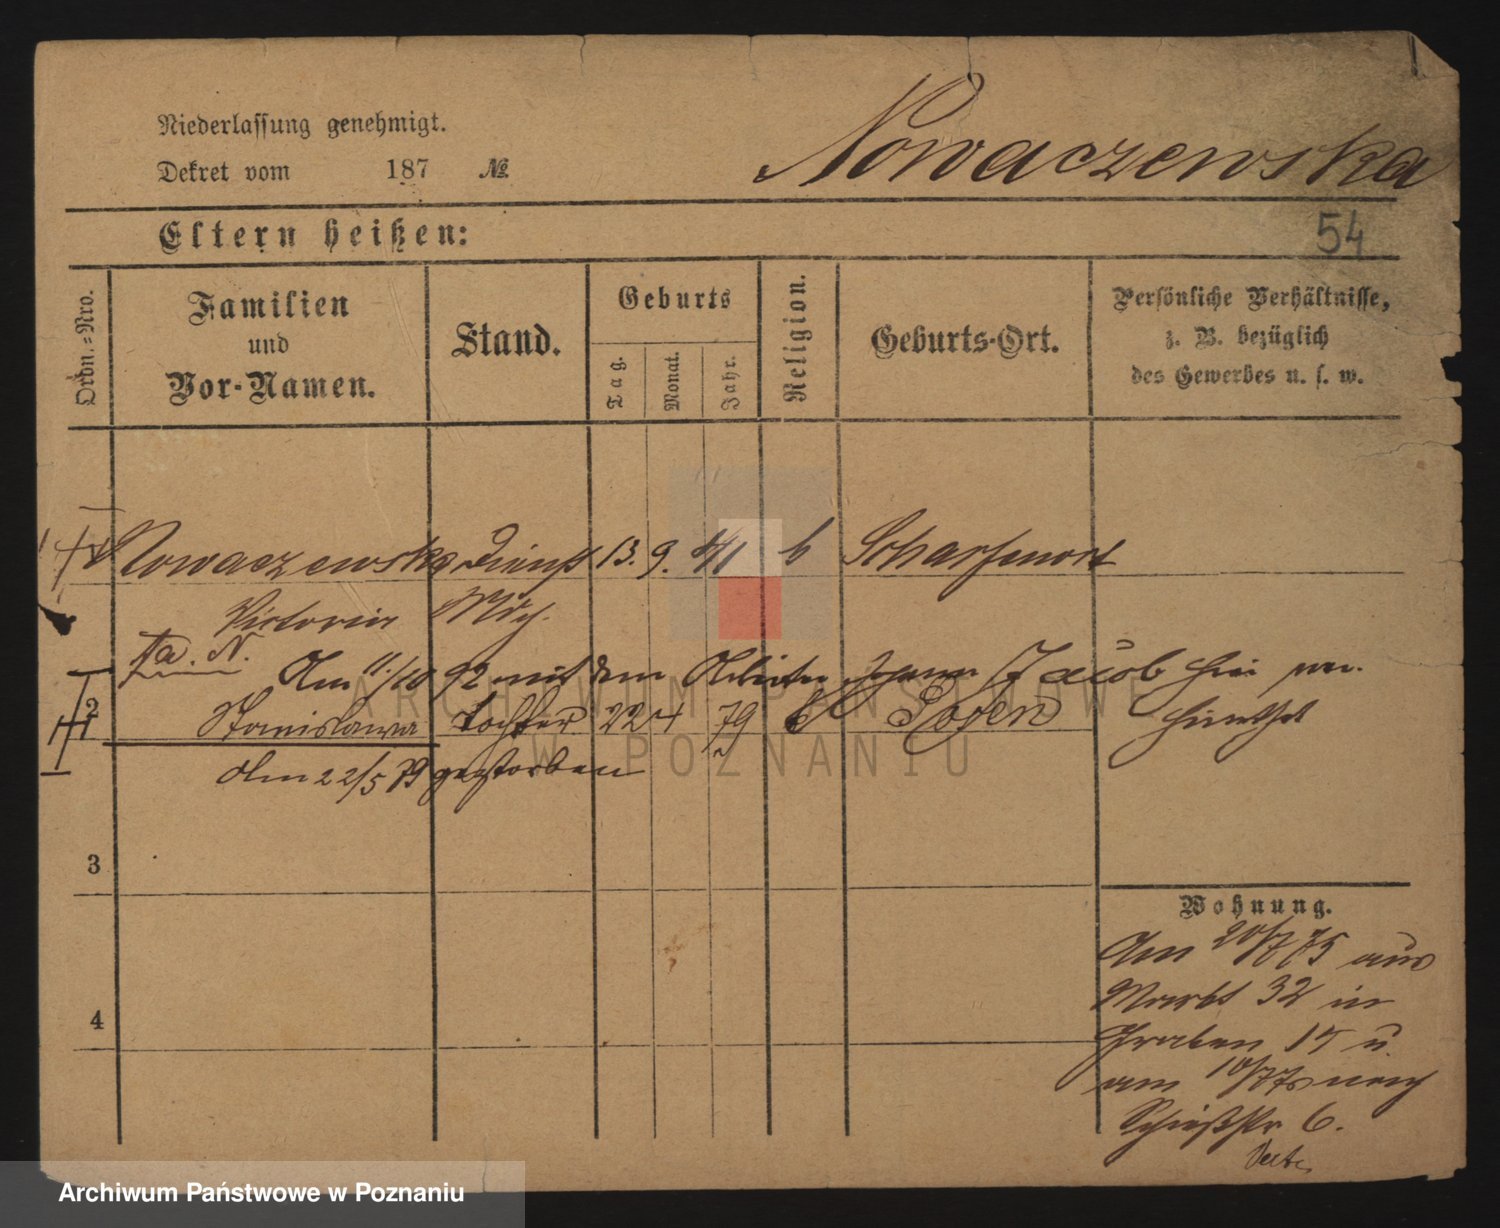 Niederlassung genehmigt.
Dekret vom 187 №
Nowaczewska
Eltern heißen:
54
Ordn.-Nro.
Familien
und
Vor-Namen.
Stand.
Geburts
Tag.
Monat.
Jahr.
Religion.
Geburts-Ort.
Persönliche Verhältnisse,
z. B. bezüglich
des Gewerbes u. s. w.
Nowaczewska Dienst 13. 9. 41 k Scharfenort
Victoria Mdch.
Am 11/10 92 mit dem Arbeiter Johann Jacob hier ver-
2 Stanislawa Tochter 22 4 79 k Posen
heirathet
Am 22/5 79 gestorben
3
4
Wohnung.
Am 20/7 75 aus
Markt 32 in
Graben 15 u.
am 10/77 nach
Schießstr 6.
ARCHIWUM PAŃSTWOWE
W POZNANIU
Archiwum Państwowe w Poznaniu